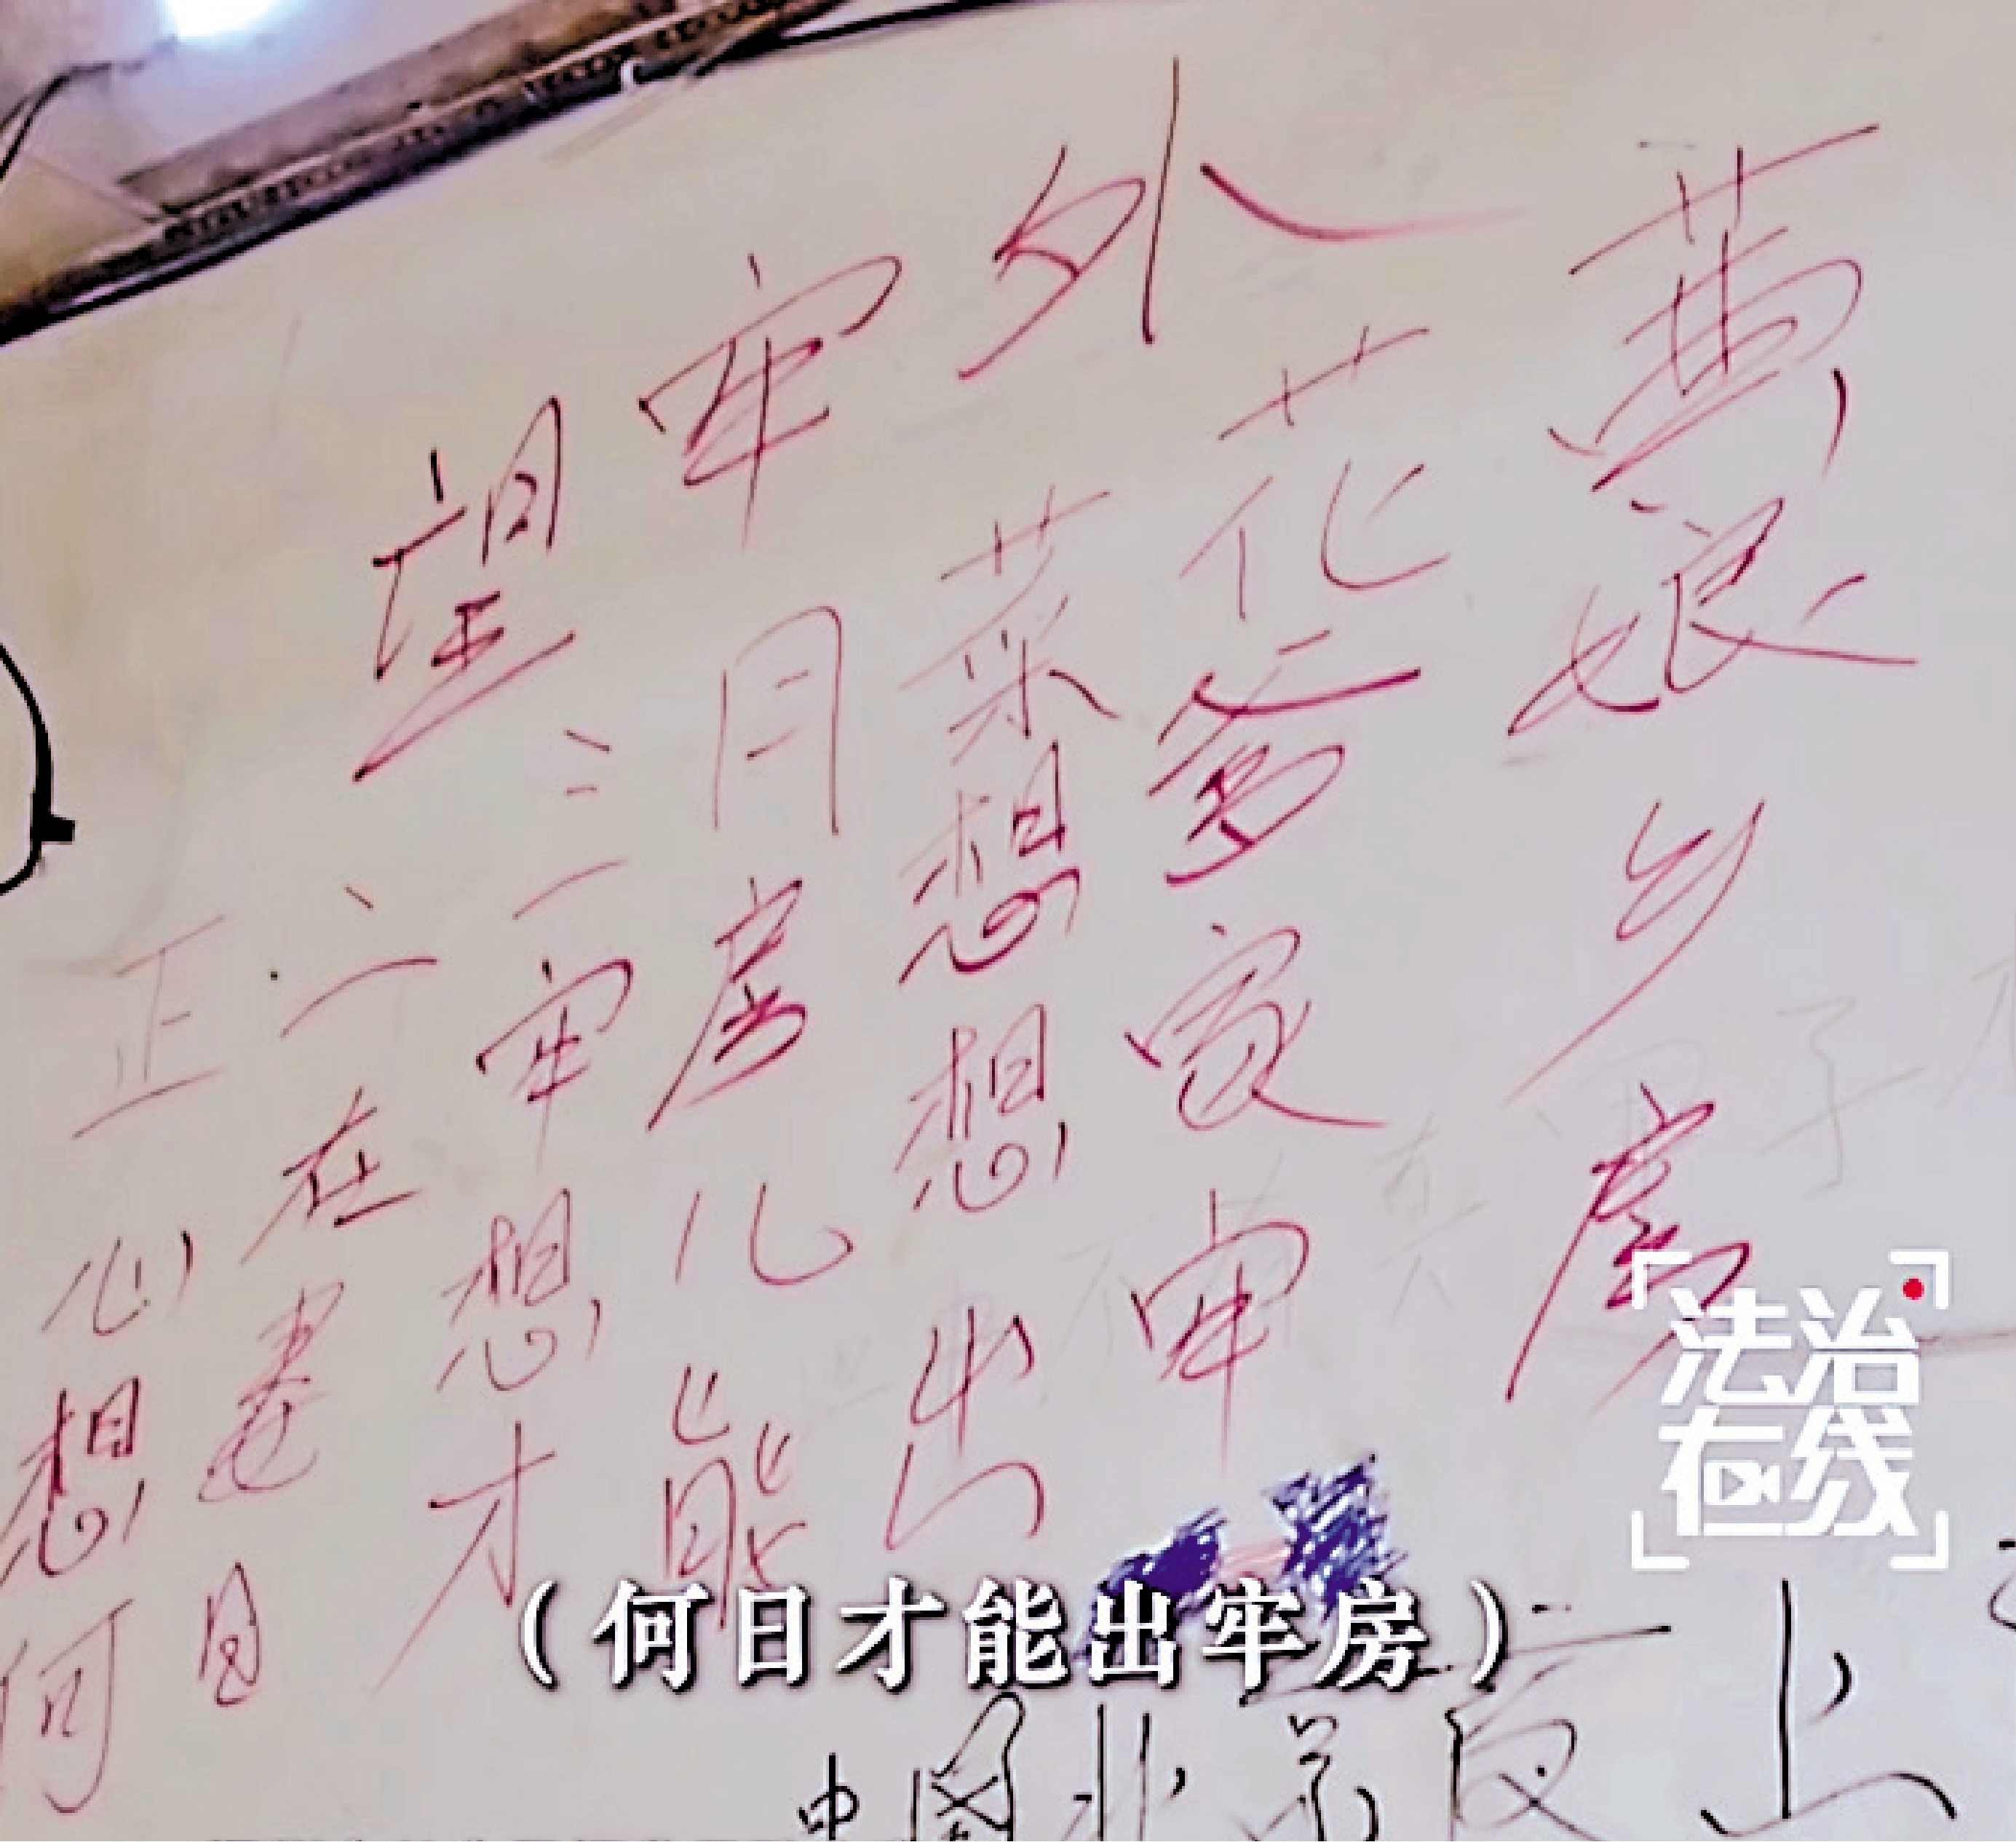 望牢外
正二三月菜花黄
心在牢房想爹娘
想想儿想家乡
何日才能出牢房
法治
在线
（何日才能出牢房）
中国北京上